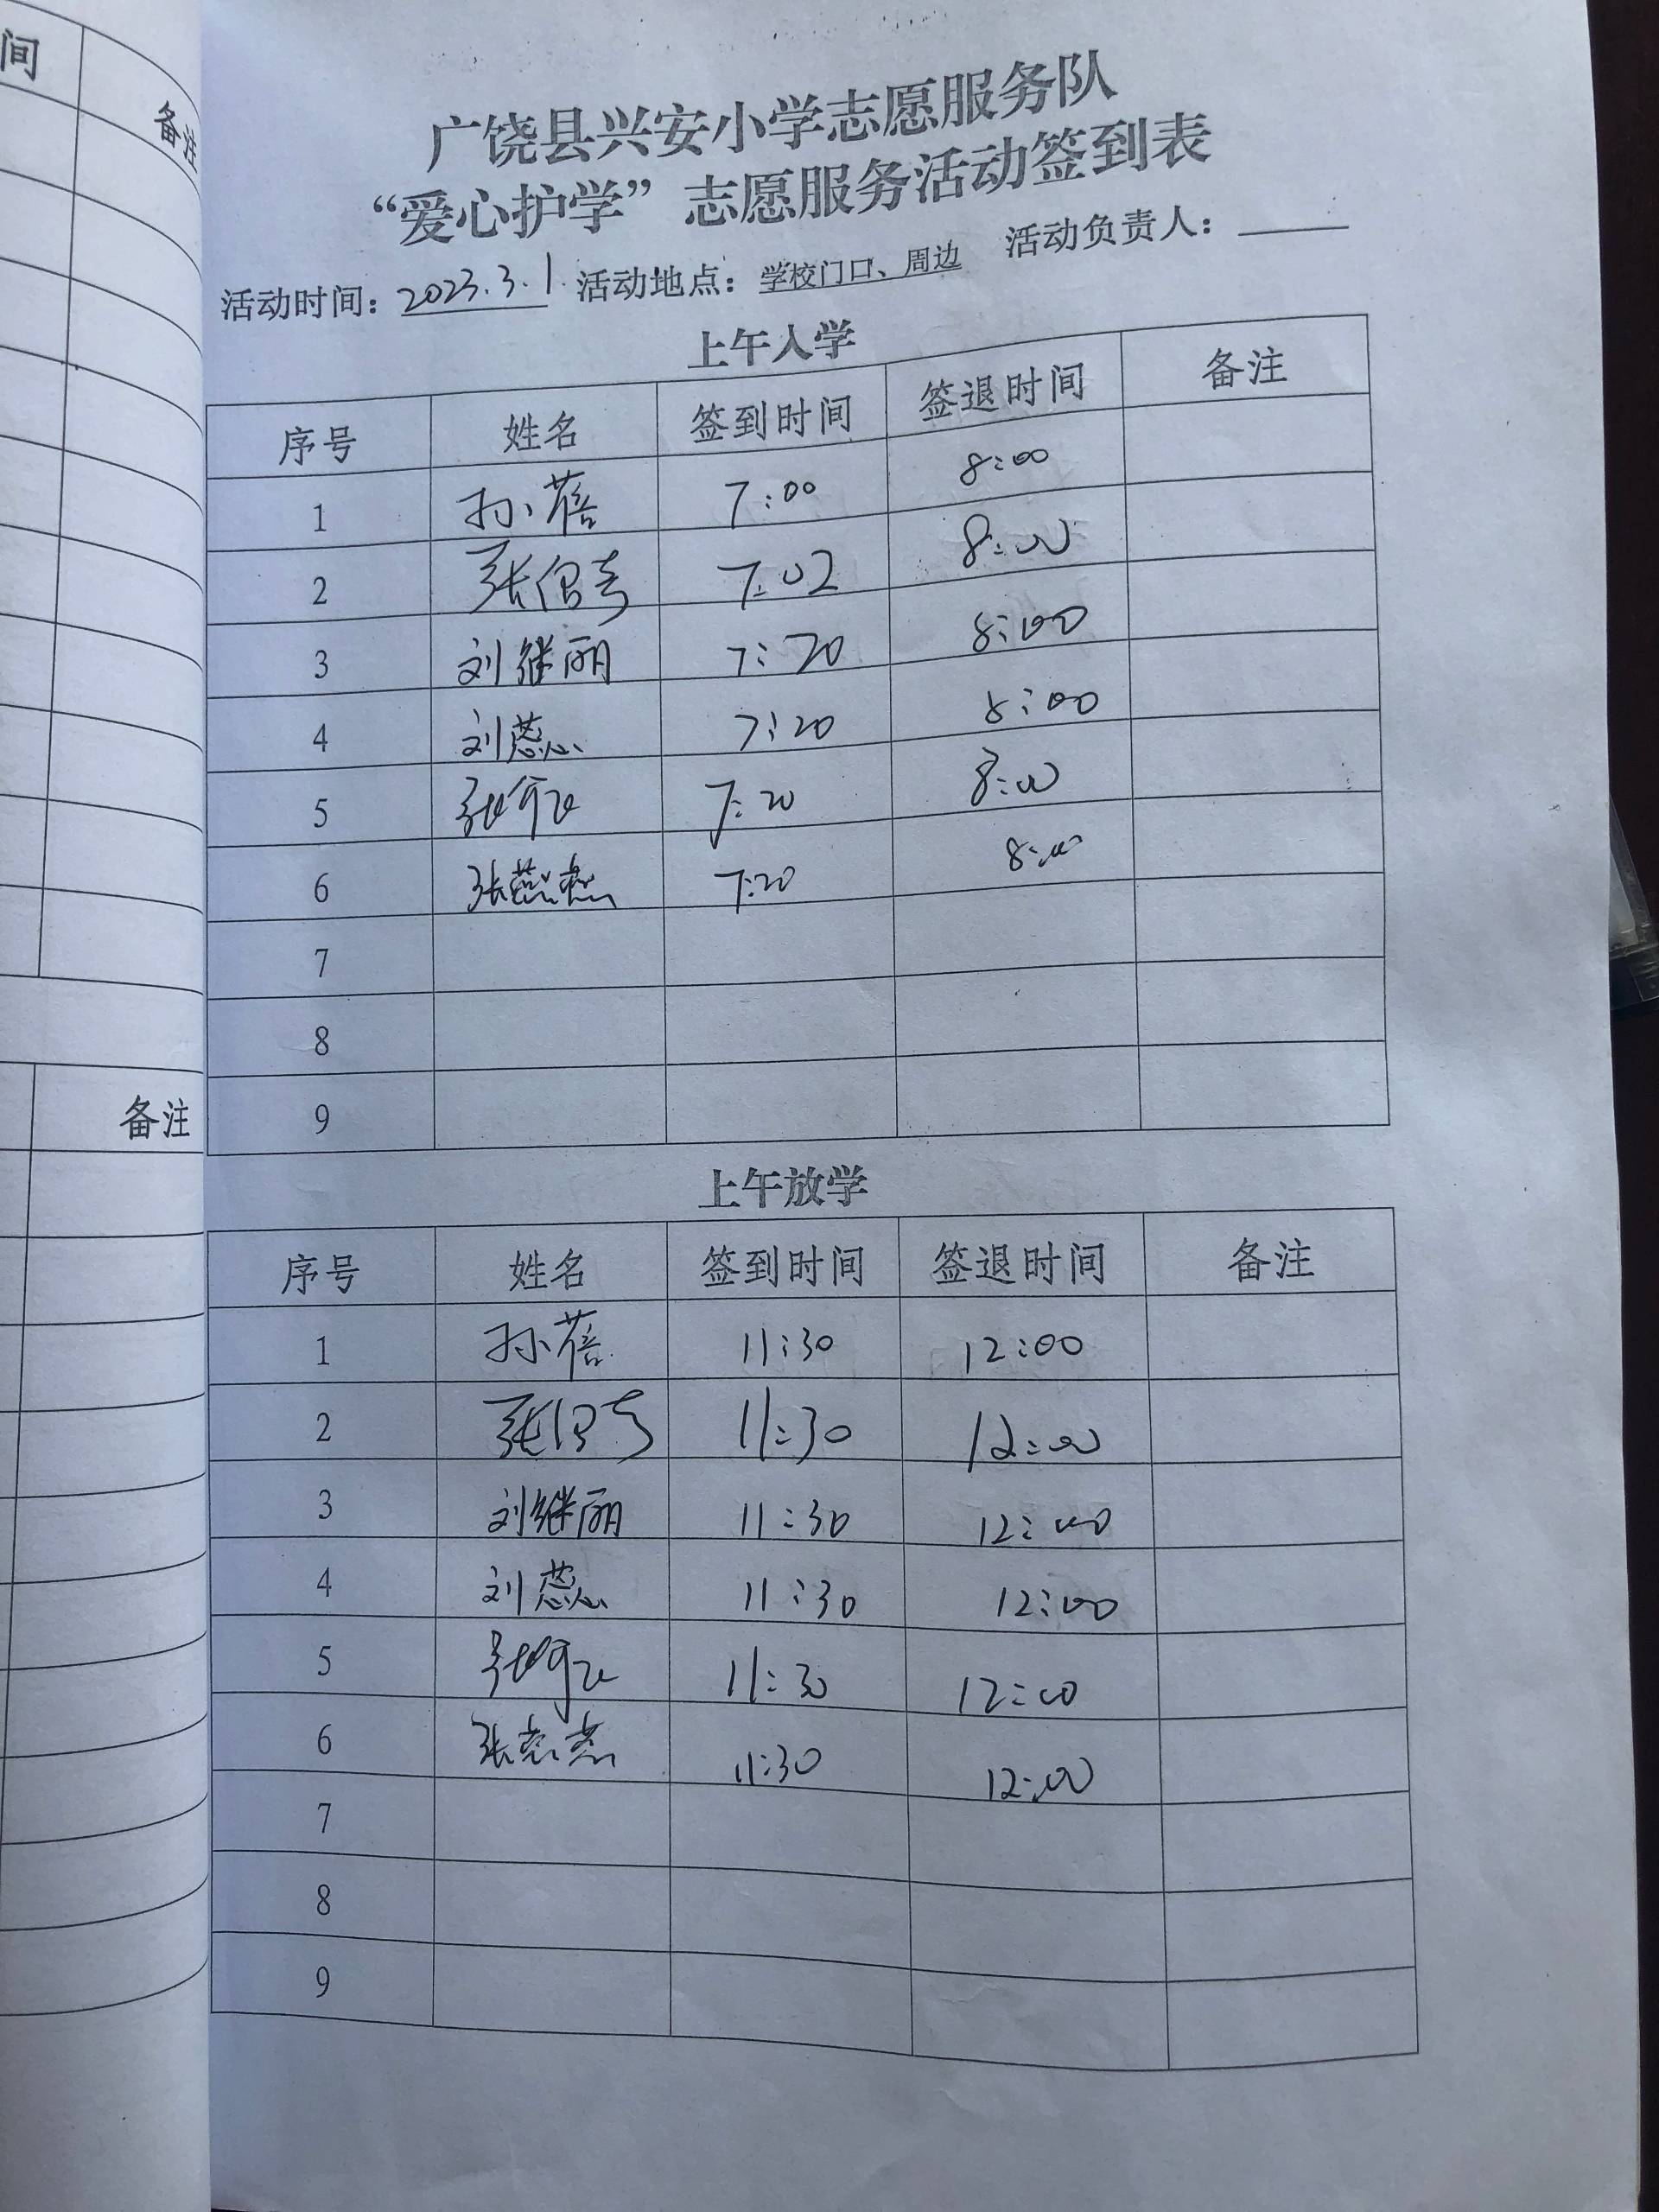 间
备注
备注
广饶县兴安小学志愿服务队
“爱心护学”志愿服务活动签到表
活动时间：2023.3.1. 活动地点：学校门口、周边 活动负责人：
上午入学
序号 姓名 签到时间 签退时间 备注
1 孙蓓 7:00 8:00
2 张 7:02 8:00
3 刘继丽 7:20 8:00
4 刘蕊 7:20 8:00
5 张 7:20 8:00
6 张燕燕 7:20 8:00
7
8
9
上午放学
序号 姓名 签到时间 签退时间 备注
1 孙蓓 11:30 12:00
2 张 11:30 12:00
3 刘继丽 11:30 12:00
4 刘蕊 11:30 12:00
5 张 11:30 12:00
6 张燕燕 11:30 12:00
7
8
9